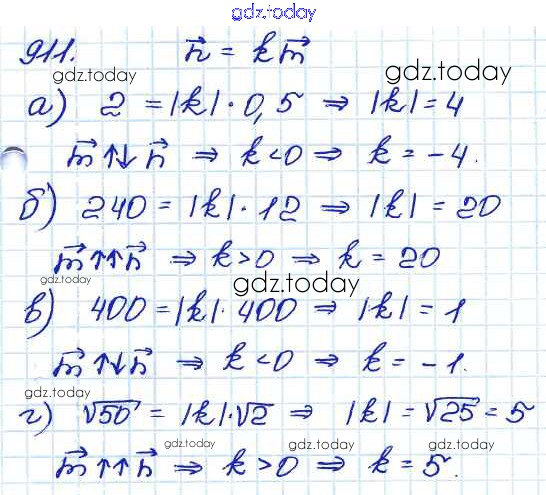 gdz.today
911. n⃗ = k m⃗
gdz.today gdz.today
а) 2 = |k| · 0,5 ⇒ |k| = 4
m⃗ ↑↓ n⃗ ⇒ k < 0 ⇒ k = -4.
gdz.today gdz.today
б) 240 = |k| · 12 ⇒ |k| = 20
m⃗ ↑↑ n⃗ ⇒ k > 0 ⇒ k = 20
gdz.today gdz.today
в) 400 = |k| · 400 ⇒ |k| = 1
m⃗ ↑↓ n⃗ ⇒ k < 0 ⇒ k = -1.
gdz.today
г) √50 = |k| · √2 ⇒ |k| = √25 = 5
gdz.today gdz.today gdz.today
m⃗ ↑↑ n⃗ ⇒ k > 0 ⇒ k = 5.